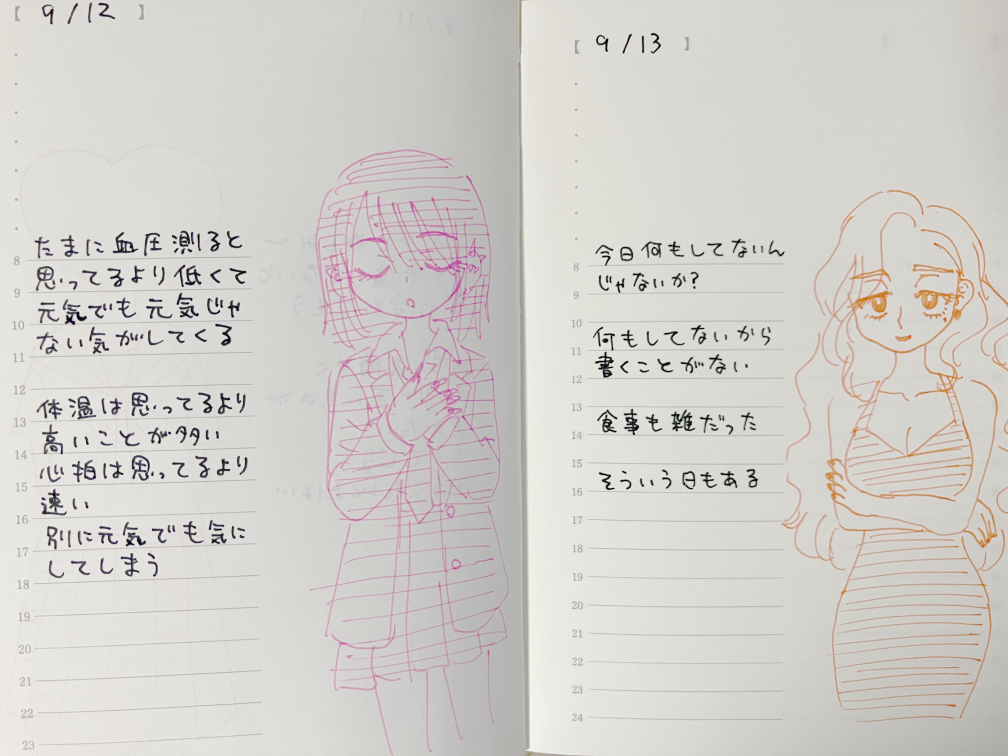 【 9/12 】
たまに血圧測ると
8 思ってるより低くて
9 元気でも元気じゃ
10 ない気がしてくる
11
12 体温は思ってるより
13 高いことが多い
14 心拍は思ってるより
15 速い
16
17 別に元気でも気に
してしまう
18
19
20
21
22
23
【 9/13 】
今日何もしてないん
8 じゃないか?
9
10 何もしてないから
11 書くことがない
12
13 食事も雑だった
14
15 そういう日もある
16
17
18
19
20
21
22
23
24